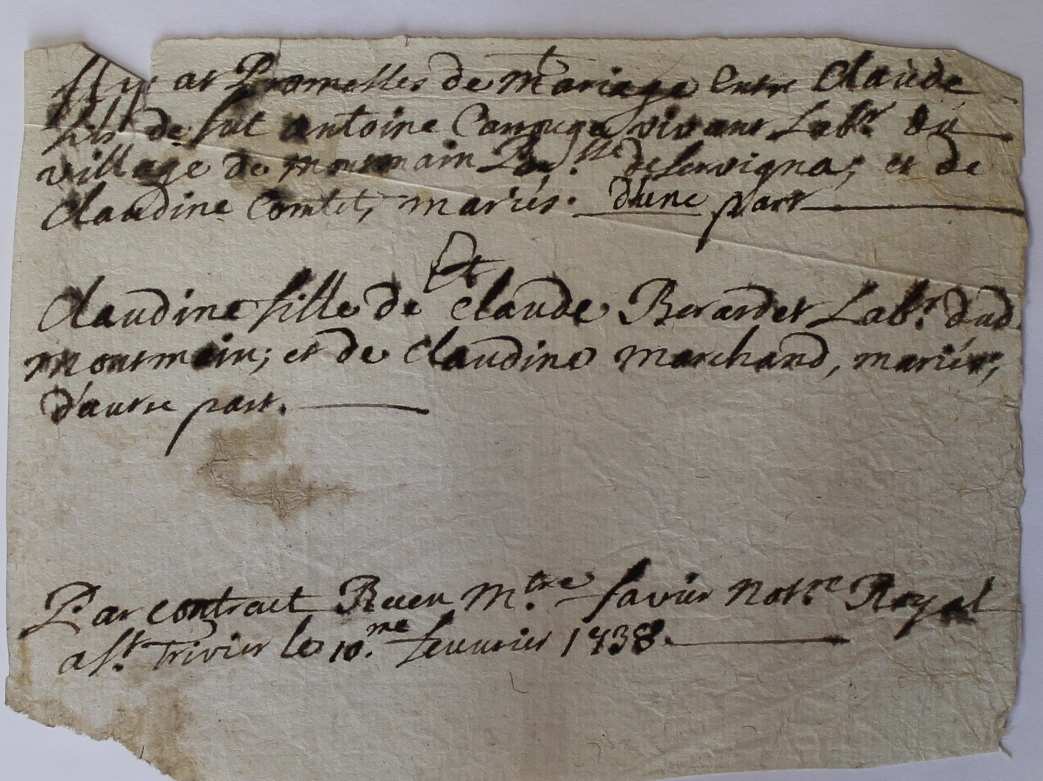 Il y at Promesses de mariage Entre Claude
fils de fut antoine vivant Lab.r du
village de mourmain de servigna; et de
Claudine Comtet, mariés. d'une part
Et
Claudine fille de Claude Berardet Lab.r dud.
mourmain; et de Claudine marchand, mariés,
d'autre part.
Par contract Receu M.tre favier Not.re Royal
a S.t Trivier le 10.me feuvrier 1738.